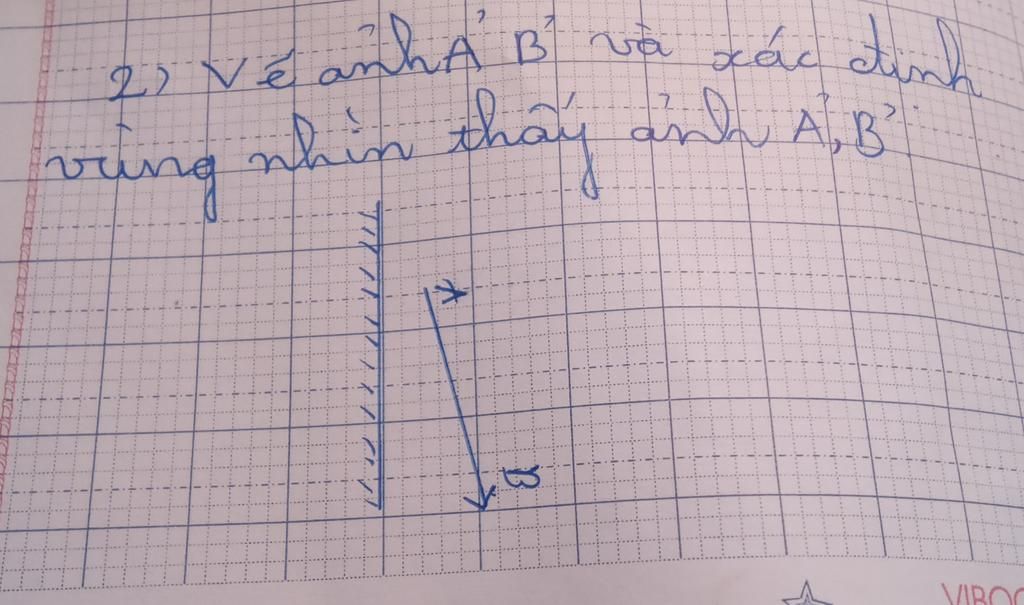 2) Vẽ ảnh A'B' và xác định
vùng nhìn thấy ảnh A', B'
A
B